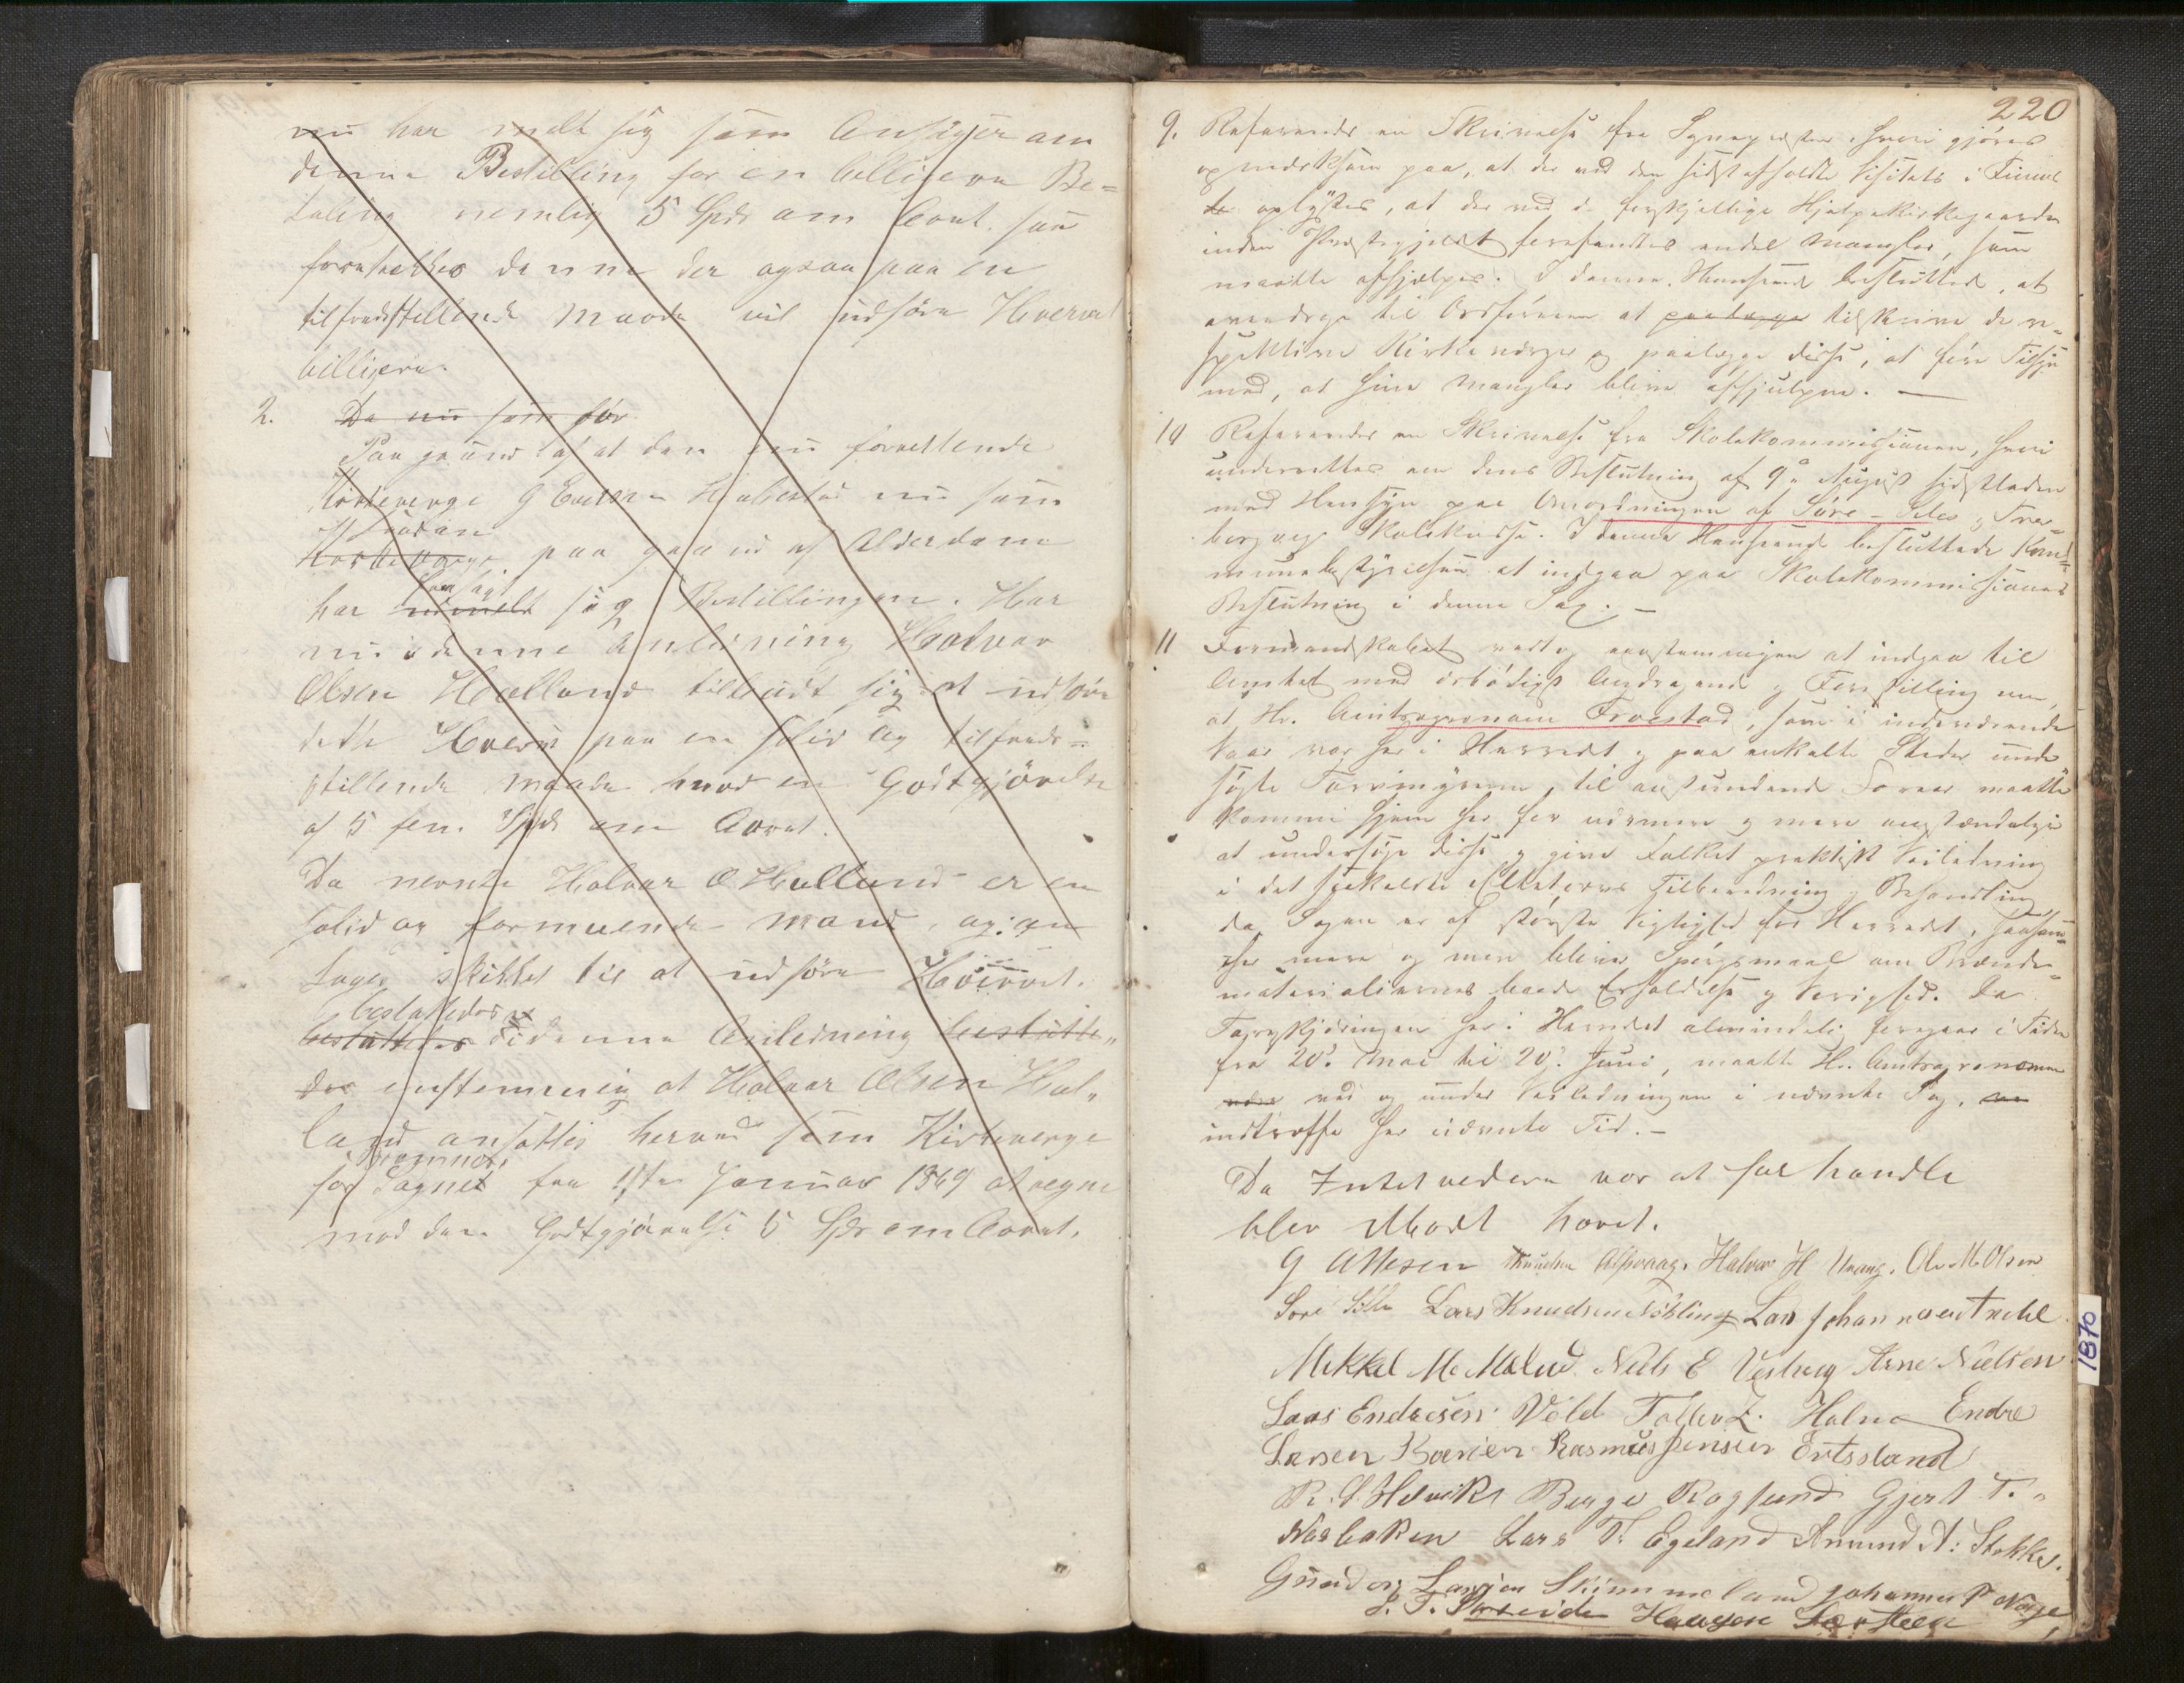 nu har meldt sig som Ansøger om
denne Bestilling for en billigere Be=
taling nemlig 5 Spdr om Aaret. saa
foretrækkes denne der ogsaa paa en
tilfredsstillende Maade vil udføre Hvervet
billigere.
2. Da nu som før
Paa grund af at den nu forrettende
Kirkeverge G Evensen nu som
saadan
Kirkeverge, paa grund af Alderdom
har sig Bestillingen. Har
nu i denne Anledning Halvor
Olsen Hulland tilbudt sig at udføre
dette Hverv paa en solid og tilfreds=
stillende Maade mod en Godtgjørelse
af 5 fem Spdr om Aaret.
Da nevnte Halvor O Hulland er en
solid og formuende Mand, og an
tages skikket til at udføre Hvervet.
besluttedes
besluttedes i denne Anledning beslutte„
des enstemmig at Halvor Olsen Hul„
land ansættes herved som Kirkeverge
for Sognet fra 1ste Januar 1869 at regne
mod den Godtgjørelse 5 Spdr om Aaret.
220
9. Refereredes en Skrivelse fra Sognepresten hvori gjøres
opmærksom paa, at der ved den sidst afholdte Visitats i
oplystes, at der ved de forskjellige Hjelpekirkegaarde
inden Prestegjeldet forefandtes endel Mangler, som
maatte afhjelpes. I denne Henseende besluttedes, at
overdrage til Ordføreren at paalægge tilskrive de re=
spektive Kirkeverger og paalægge disse, at føre Tilsyn
med, at hine Mangler blive afhjulpne. —
10 Refereredes en Skrivelse fra Skolekommissionen, hvori
underrettes om dens Beslutning af 9de August sidstleden
med Hensyn paa Omordningen af Søre-
Skolekredse. I denne Henseende besluttede Kom=
munebestyrelsen at indgaa paa Skolekommissionens
Beslutning i denne Sag. —
11 Formandskabet vedtog eenstemmigen at indgaa til
Amtet med ærbødigst Andragende og Forestilling om,
at Hr. Amtsagronom Froestad, som i indeværende
Vaar var her i Herredet og paa enkelte Steder under
søgte Torvmyrene, til anstundende Foraar maatte
komme hjem her for nærmere og mere omstændelige
at undersøge disse og give Folket praktisk Veiledning
i det saakaldte Æltetorvs Tilberedning og Behandling
da Sagen er af største Vigtighed for Herredet, saasom
her mere og mere bliver Spørgsmaal om Brænde=
materialiernes baade Erholdelse og Varighed. Da
Torvskjæringen her i Herredet almindelig foregaar i Tiden
fra 20de Mai til 20de Juni, maatte Hr. Amtsagronomen
være ved og under Veiledningen i nævnte Sag,
indtræffe her nævnte Tid. —
Da Intet videre var at forhandle
blev Mødet hævet.
G Attesen Knudsen Alsvaag. Halvor H Urang. Ole M Olsen
Tore Lars Knudsen Lars Johannesen
Mikkel M. Mælud Nils E Vestvig Arne Nielsen
Lars Endresen Vold Tollev Z. Halne Endre
Larsen Rasmus Jensen Ertsland
R. S. Helvik Børge Rogsund Gjert T.
Nasbaken Lars T. Egeland Amund A: Stokke.
Gunder Larsen Skimmeland Johannes P
S. T. Haugen
1870